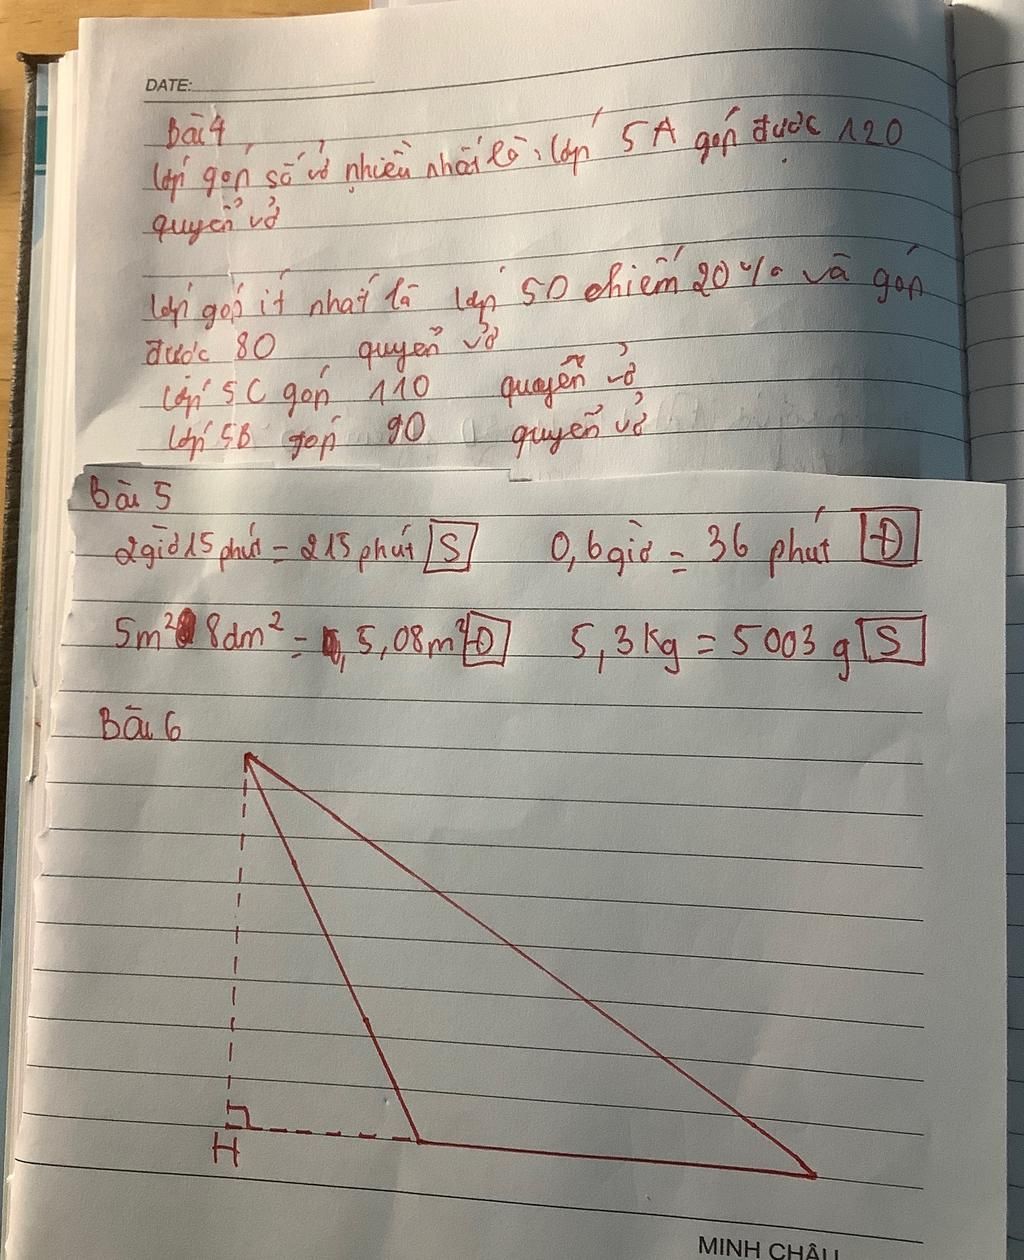 DATE:
Bài 4
lớp góp số vở nhiều nhất là: lớp 5A góp được 120
quyển vở
lớp góp ít nhất là lớp 5D chiếm 20% và góp
được 80 quyển vở
lớp 5C góp 110 quyễn vở
lớp 5B góp 90 quyển vở
Bài 5
2giờ15 phút = 215 phút S 0,6giờ = 36 phút Đ
5m² 8dm² = 5,08m² Đ 5,3kg = 5003 g S
Bài 6
H
MINH CHÂU